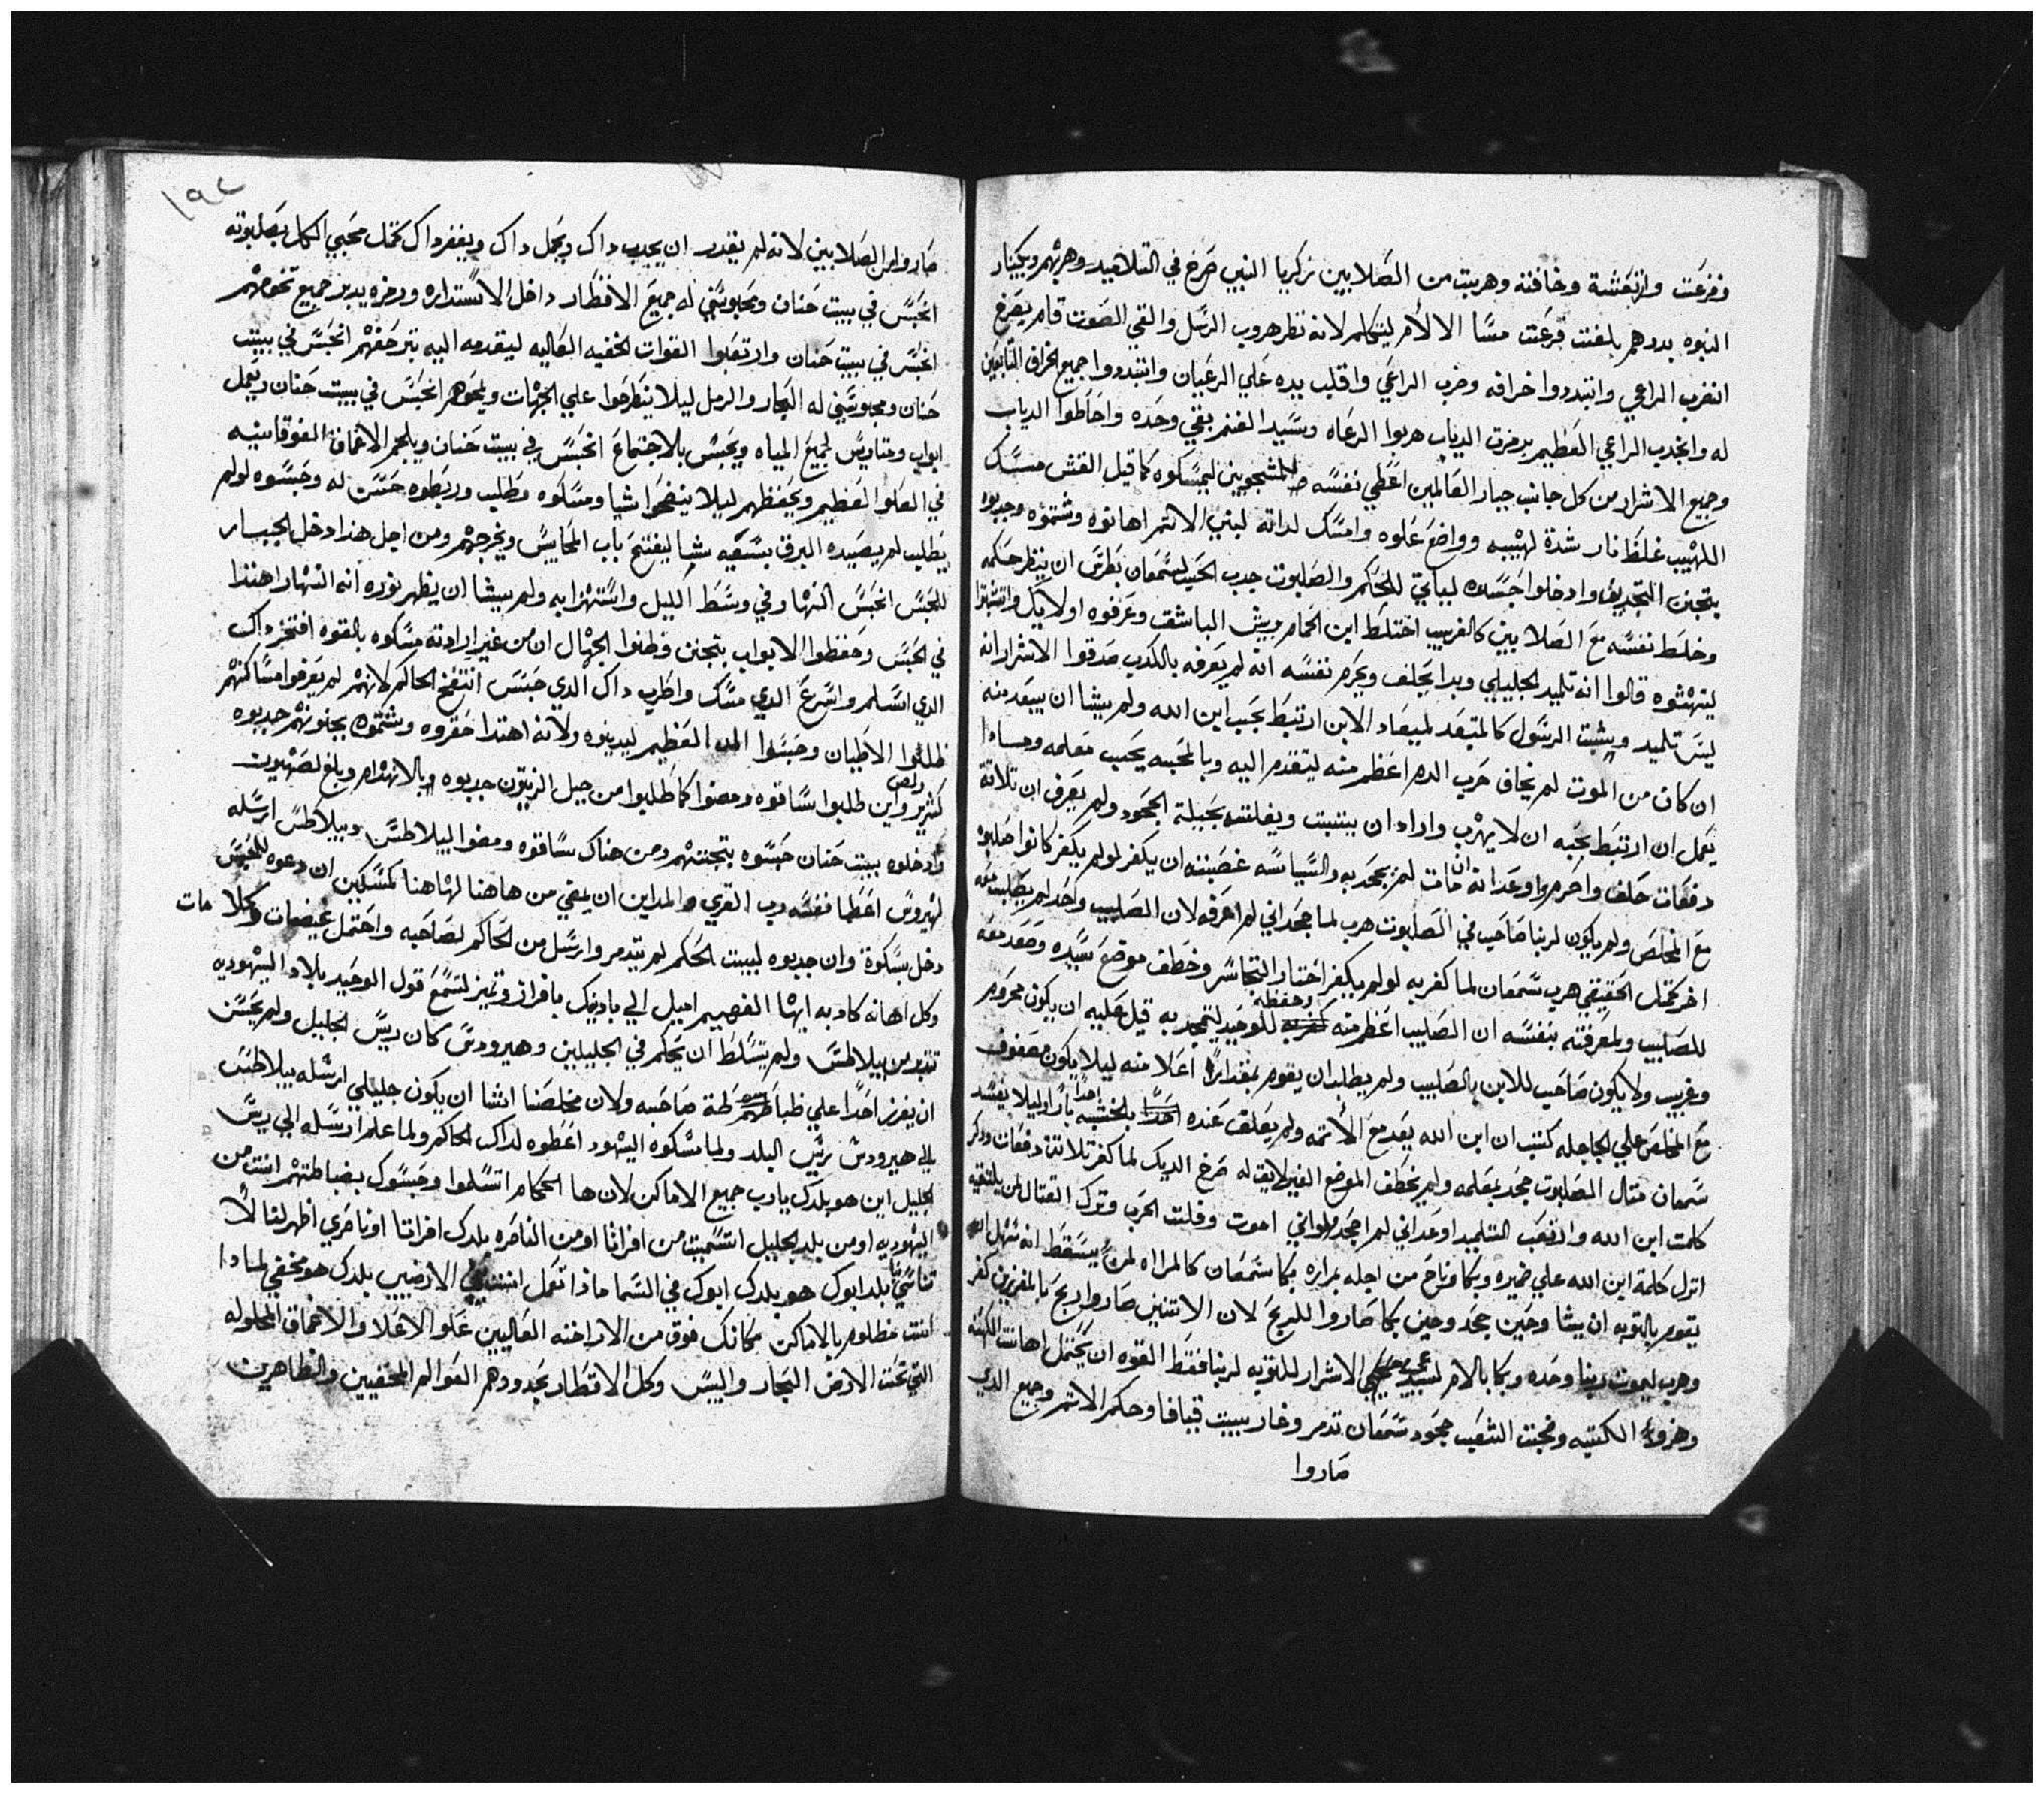 وفزعت وارتعشة وخافته وهربت من الصلابين زكريا النبي صرخ في التلاميد وهربهم وبكينار
النبوه بددهم بلغت فزعت مسا الا لأمر ليتكلم لانه نظر هروب الرسل والقي الصوت قام يصرخ
انضرب الراعي وانتبددوا خرافه وضرب الراعي واقلب يده علي الرعيان وانتبددوا جميع الخراف التابعين
له وانجدب الراعي العظيم برمزت الدياب هربوا الرعاه وسيد الغنم بقي وحده واحاطوا الدياب
وجميع الاشرار من كل جانب جبار العالمين اعطي نفسه للمشجوبين ليمسكوه كما قيل القش مسك
اللهيب غلظ نار شدة لهيبه وواضع علوه وامسك لداته لبني الاتم اهانوه وشتموه وجدبوه
بتجنن التجديف وادخلوا جسده لبياتي للحكم والصلبوت جدب الحب لسمعان بطرس ان ينظر حكمه
وخلط نفسه مع الصلابين كالغريب اختلط ابن الحمام وريش الباشق وعرفوه اولايك وانتبهزا
لينهشوه قالوا انه تلميد الجليلي وبدا يحلف ويحرم نفسه انه لم يعرفه بالكدب صدقوا الاشرار انه
ليس تلميد ويثبت الرسول كالمتبعد لميعاد الابن ارتبط بحب ابن الله ولم يشا ان يبتعد منه
ان كان من الموت لم يخاف حرب الدم اعظم منه ليتقدم اليه وبالمحبه يحب معلمه وماذا
يعمل ان ارتبط بحبه ان لا يهرب واراد ان يتثبت ويفلت بحيلة الجحود ولم يعرف ان تلاتة
دفعات حلف واحرم واوعد انه ان مات لم يجحد به والسياسه غصبته ان يكفر لو لم يكفر كانوا صلبوه
مع المخلص ولم يكون لربنا صاحب في الصلبوت هرب لما جحد اني لم اعرفه لان الصليب واحد لم يصلبت معه
اخر كمتل الحقيقي هرب سمعان لما كفر به لو لم يكفر اختار التجاسر وخطف موضع سيده وصعد معه
للصليب ولمعرفته بنفسه ان الصليب اعظم منه وحفظه للوحيد ليتمجد به قبل صليبه ان يكون محروم
وغريب ولا يكون صاحب للابن بالصليب ولم يطلب ان يقوم بمقدارا اعلا منه ليلا يكون مصفوف
مع المخلص علي الجاجله كتب ان ابن الله يعد مع الأتمه ولم يعلق عنده احدا بلخشبه بارا وليلا يفسد
سمعان متال الصلبوت جحد بمعلمه ولم يخطف الموضع الغير لايق له صرخ الديك لما كفر تلاتة دفعات ودكر
كلمت ابن الله وارتعب التلميد اوعد اني لم اجحد ولو اني اموت وفلت الحرب وترك القتال لمن يلتقيه
انزل كلمة ابن الله علي ضميره وبكا وناح من اجله بمراره بكا سمعان كالمراه لمن يسقط انه سهل
يقوم بالتوبه ان يشا وحين جحد وحين بكا صاروا للربح لان الاتنين صاروا ربح بالمفرزين كفر
وهرب ليموت ربنا وحده وبكا بالام لسبب الاشرار للتوبه لربنا فقط القوه ان يحتمل اهانت الكهنه
وهزوا الكتبه وضجت الشعب جحود سمعان تدمر وغار ببيت قيافا وحكم الاتم وجميع الدي
صاروا
١٩٢
صاروا من الصلابين لانه لم يقدر ان يجدب داك ويحمل داك ويغفر داك كمتل محبي الكل بصلبوته
انحبس في بيت حنان ومحبوسين له جميع الاقطار داخل الاستداره ورمزه يدبر جميع تخومهم
انحبس في بيت حنان وارتعبوا القوات الخفيه العاليه ليتقدموا اليه بترجفهم انحبس في بيت
حنان ومحبوسين له البحار والرمل ليلا ينطرحوا علي الجهات ويلجوهم انحبس في بيت حنان ويعمل
ابواب ومتاريس لجميع المياه ويحبس بلاجتماع انحبس في بيت حنان ويلجم الاعماق الفوقانيه
في العلو العظيم ويحفظهم ليلا ينضحوا شيا ومسكوه مطليب وربطوه حسن له وحبسوه لو لم
يطليب لم يصيده البرق بسعيه شيا ليفتح باب المحابيس ويخرجهم ومن اجل هذا دخل الجبار
للحبس انحبس النهار وفي وسط الليل واستهزا به ولم يشا ان يظهر نوره انه النهار اهتدا
في الحبس وحفظوا الابواب بتجنن وظنوا الجهال ان من غير ارادته مسكوه بالقوه افتخر داك
الدي استلم واسرع الدي مسك واطرب داك الدي حبس انتفخ الحاكم لانهم لم يعرفوا مسا كنهم
ظلموا الاطيان وحبسوا العظيم ليدينوه ولانه اهتدا حقروه وشتموه بجنونهم جدبوه
كتير واين طلبوا ساقوه ومضوا كما طلبوا من جبل الزيتون جدبوه وبالانهدام وبلغ لصهيون
وادخلوه ببيت حنان حبسوه بتجننهم ومن هناك ساقوه ومضوا لبيلاطس وبيلاطس ارسله
لهيرودس اعطا نفسه رب القري والمداين ان يمضي من هاهنا لهاهنا كمسكين ان دعوه للحبس
دخل بسكوة وان جدبوه لبيت الحكم لم يتدمر وارسل من الحاكم لصاحبه واحتمل غيضمات وكلامات
وكل اهانه كادبه ايها الفهيم اميل الي بادينك بافراز وتميز لتسمع قول الوحيد بلاد اليهوديه
تتدبر من بيلاطس ولم يتسلط ان يحكم في الجليليين وهيرودس كان ريس الجليل ولم يحسن
ان يفرز احدا علي سلطة صاحبه ولان مخلصنا انشا ان يكون جليلي ارسله بيلاطس
الي هيرودس ريس البلد ولما مسكوه اليهود اعطوه لداك الحاكم ولما علم ارسله الي ريس
الجليل اين هو بلدك يا رب جميع الاماكن لان ها الحكام اتسلموا وحبسوك بضباطتهم انت من
اليهوديه او من بلد الجليل اتسميت من افراتا او من الناصره بلدك افراتا او ناصري اظهر لنا لا
تناسي بلد ابوك هو بلدك ابوك في السما ماذا تعمل انت في الارضيين بلدك هو مخفي لماذا
انت مظلوم بالاماكن مكانك فوق من الاراخنه العاليين علو الاعلا والاعماق المحلوله
التي تحت الارض البحار واليبس وكل الاقطار بحدودهم العوالم المخفيين والظاهرين